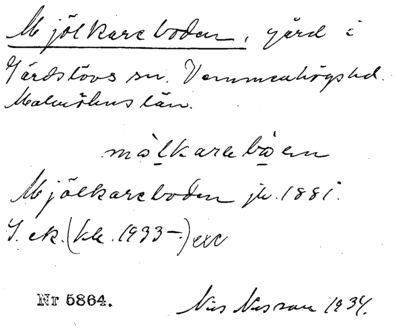 Mjölkareboden, gård i
Gärdslövs sn. Vemmenhögs hd.
Malmöhus län.
mälkarebàen
Mjölkareboden jb. 1881.
T. ek. (kk. 1933–)
Nr 5864.
Nils Nilsson 1934.